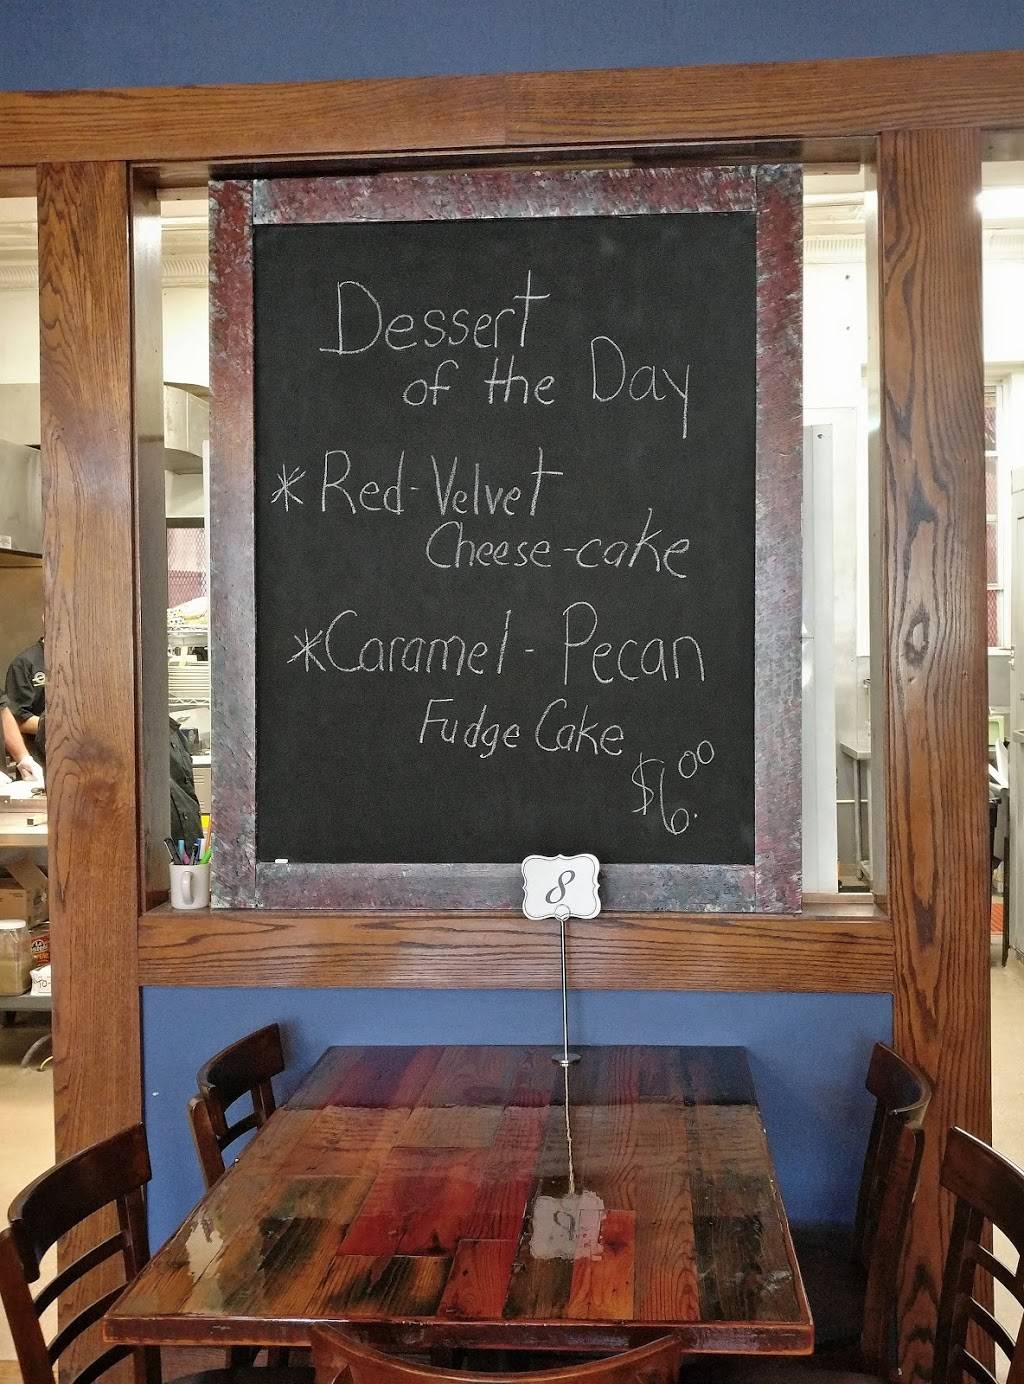 Dessert
of the Day
* Red-Velvet
Cheese-cake
* Caramel - Pecan
Fudge Cake
$6.00
8